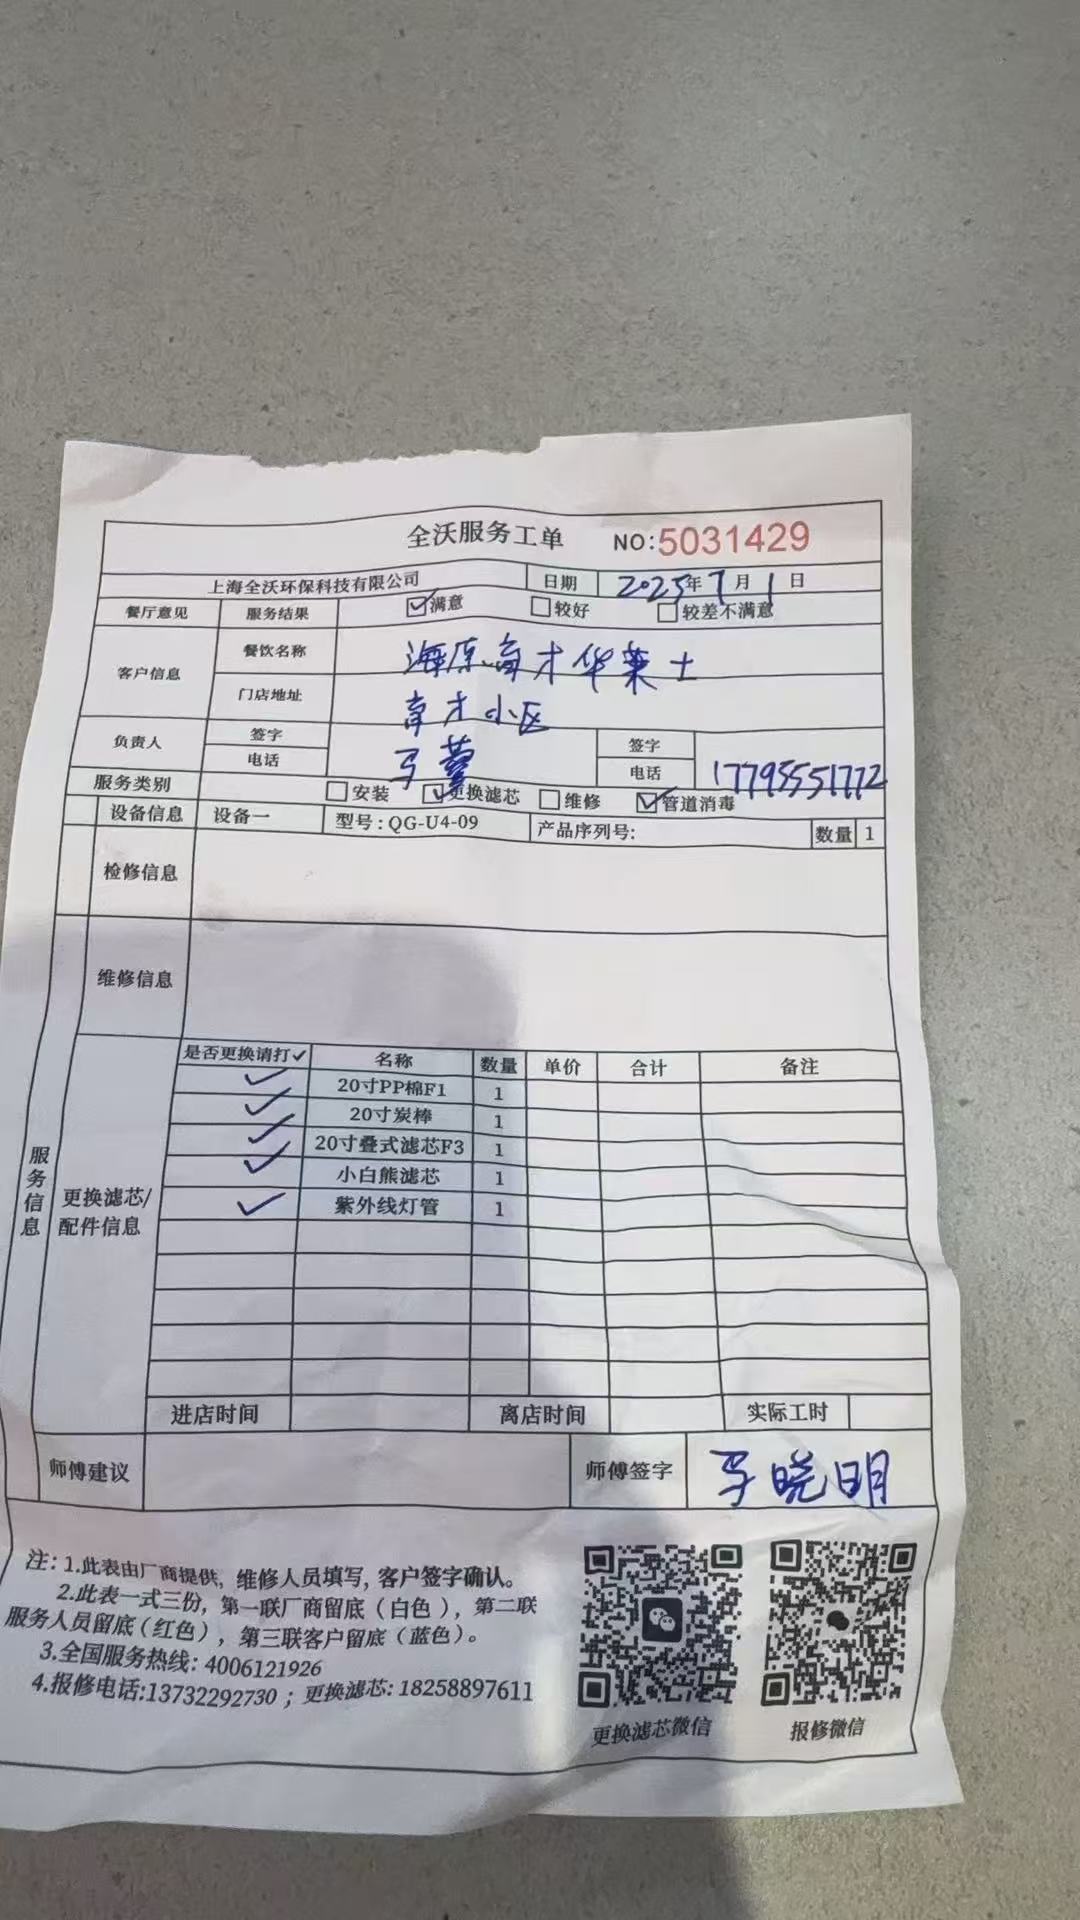 全沃服务工单 NO:5031429
上海全沃环保科技有限公司 日期 2025年7月1日
餐厅意见 服务结果 ☑满意 □较好 □较差不满意
客户信息 餐饮名称 海原育才华莱士
门店地址 育才小区
负责人 签字 马 签字
电话 电话 17795551772
服务类别 □安装 ☑更换滤芯 □维修 ☑管道消毒
设备信息 设备一 型号:QG-U4-09 产品序列号: 数量 1
检修信息
维修信息
服务信息
更换滤芯/配件信息
是否更换请打✓ 名称 数量 单价 合计 备注
✓ 20寸PP棉F1 1
✓ 20寸炭棒 1
✓ 20寸叠式滤芯F3 1
✓ 小白熊滤芯 1
✓ 紫外线灯管 1
进店时间 离店时间 实际工时
师傅建议 师傅签字 晓明
注:1.此表由厂商提供,维修人员填写,客户签字确认。
2.此表一式三份,第一联厂商留底(白色),第二联
服务人员留底(红色),第三联客户留底(蓝色)。
3.全国服务热线:4006121926
4.报修电话:13732292730;更换滤芯:18258897611
更换滤芯微信 报修微信